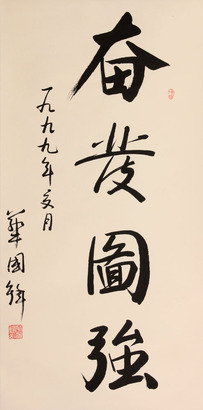 奋發圖強
一九九九年 月
華國鋒